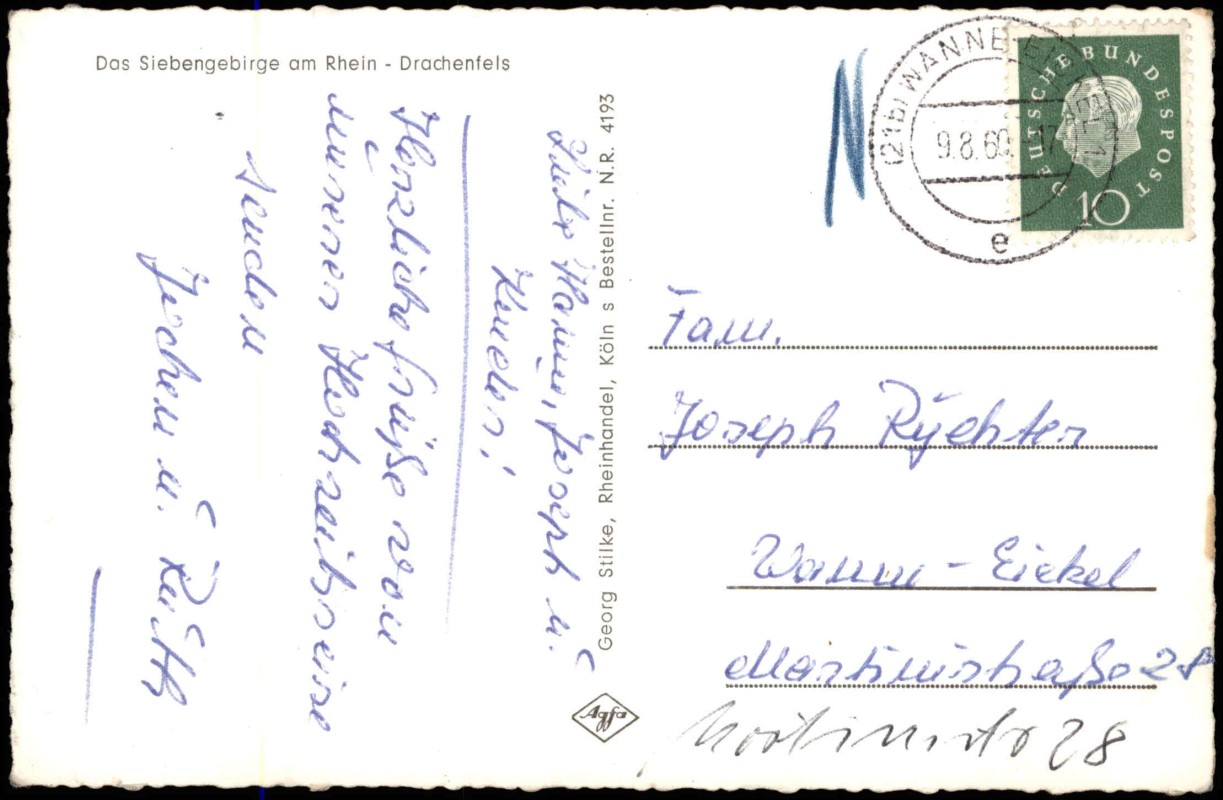 Das Siebengebirge am Rhein - Drachenfels
Liebe Hanni, Joseph u.
Kinder!
Herzliche Grüße von
unserer Hochzeitsreise
senden
Jochem u. Ruth
Georg Stilke, Rheinhandel, Köln s Bestellnr. N.R. 4193
Agfa
N
(21b) WANNE-EICKEL 1
9.8.60.-17
e
DEUTSCHE BUNDESPOST
10
Fam.
Joseph Rychter
Wanne-Eickel
Martinistraße 28
28